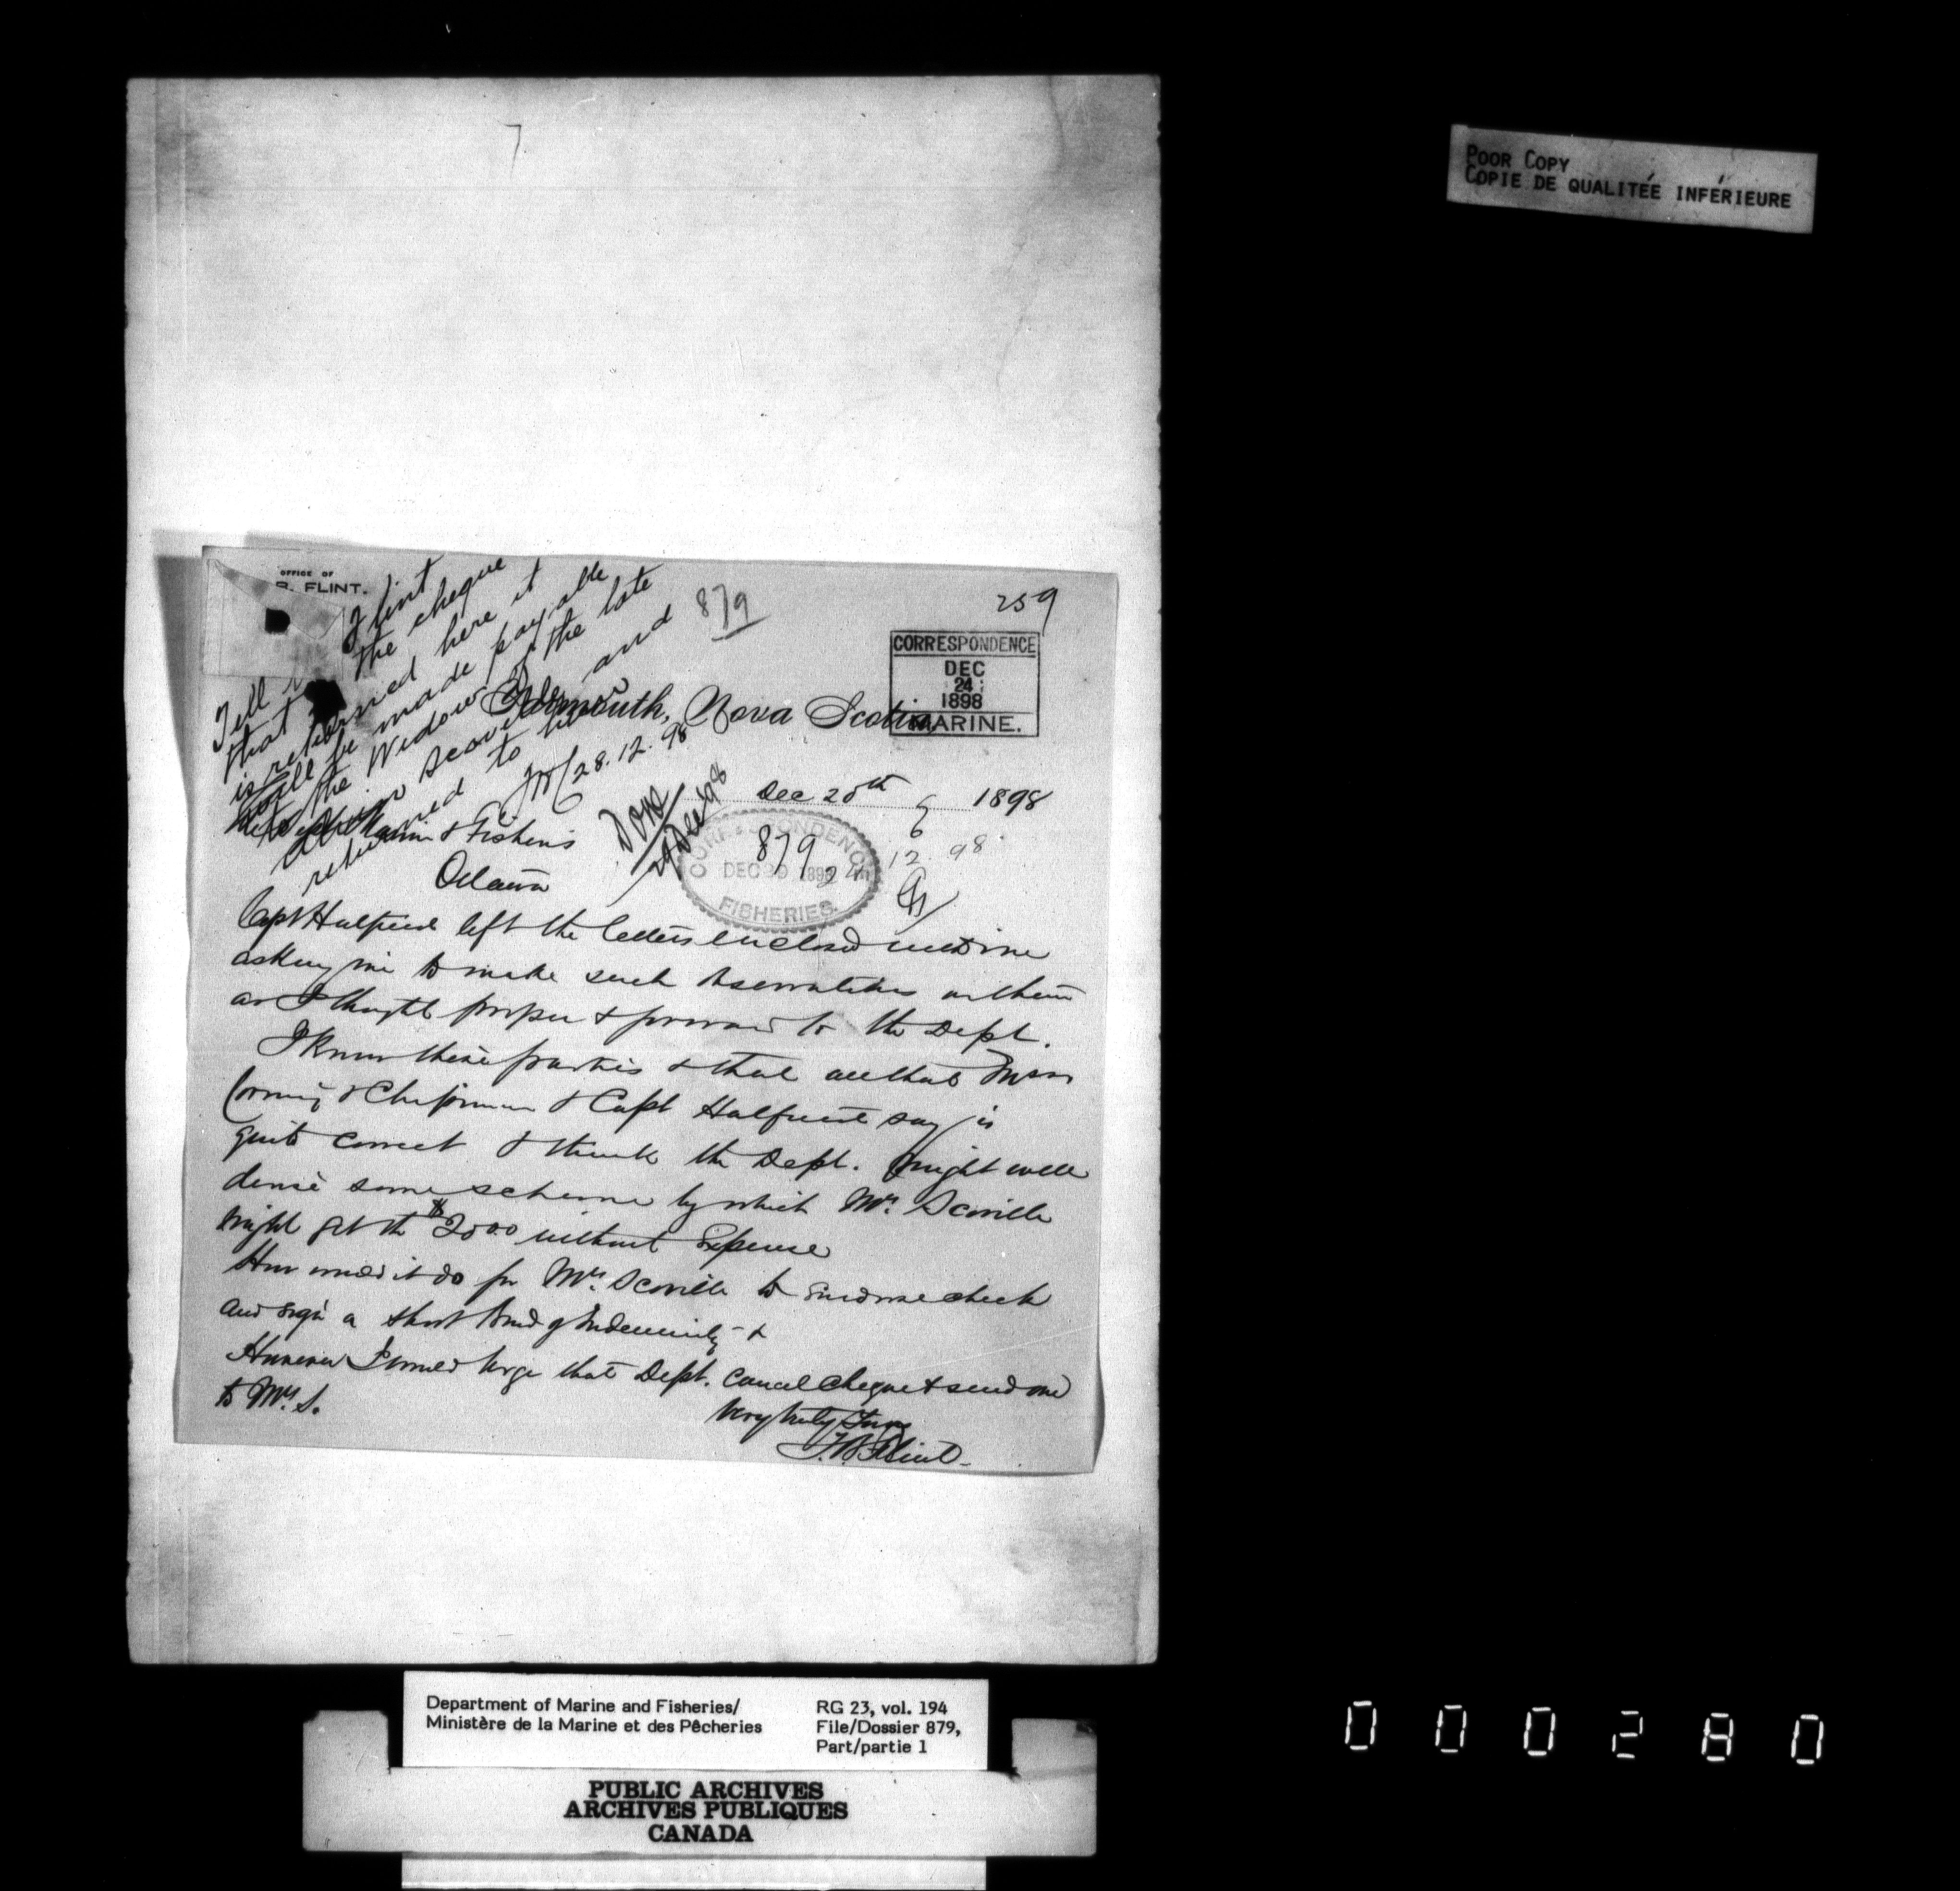 7
POOR COPY
COPIE DE QUALITÉE INFÉRIEURE
OFFICE OF
B. FLINT.
259
879
CORRESPONDENCE
DEC
24
1898
MARINE.
Tell Flint
that the cheque
is returned here it
will be made payable
to the Widow of the late
Scoville and
returned to her
28.12.98
Yarmouth, Nova Scotia,
Dec 20th 1898
Done
29 Dec 98
CORRESPONDENCE
879
DEC 1898
FISHERIES.
12.98
Marine & Fisheries
Ottawa
Capt Halfried left the letters enclosed with me
asking me to make such observations on them
as I thought proper & forward to the Dept.
I know these parties & that all that Messrs
Corning & Chipman & Capt Halfried say is
quite correct & think the Dept. might well
devise some scheme by which Mrs. Scoville
might get the $20.00 without Expense
How would it do for Mrs. Scoville to endorse check
and sign a short Bond of Indemnity - &
However I would urge that Dept. Cancel cheque & send one
to Mrs. S.
Very truly Yours
T. B. Flint
Department of Marine and Fisheries/
Ministère de la Marine et des Pêcheries
RG 23, vol. 194
File/Dossier 879,
Part/partie 1
PUBLIC ARCHIVES
ARCHIVES PUBLIQUES
CANADA
000280